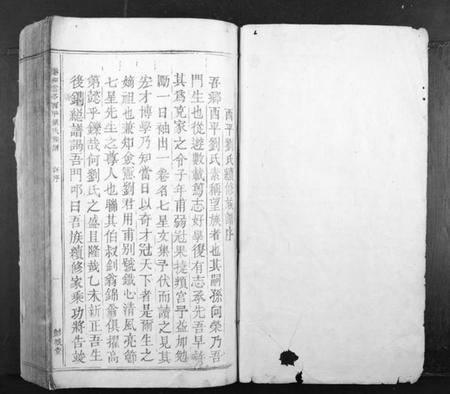 酉平劉氏續修族譜序
吾鄉酉平劉氏素稱望族者也其嗣孫向榮乃吾
門生也從遊數載篤志好學復有志承先吾早
其爲克家之令子年甫弱冠果捷黌宮予益加勉
勵一日袖出一卷名七星文集予伏而讀之見其
宏才博學乃知當日以奇才冠天下者是爾生之
嫡祖也兼知僉憲劉君用甫別號鐵心清風亮節
七星先生之尊人也聯其伯叔劍翁錦翁俱擢高
第懿乎鑠哉何劉氏之盛且隆哉乙未新正吾生
後鋼總譜謁吾門叩曰吾族續修家乘功將告竣